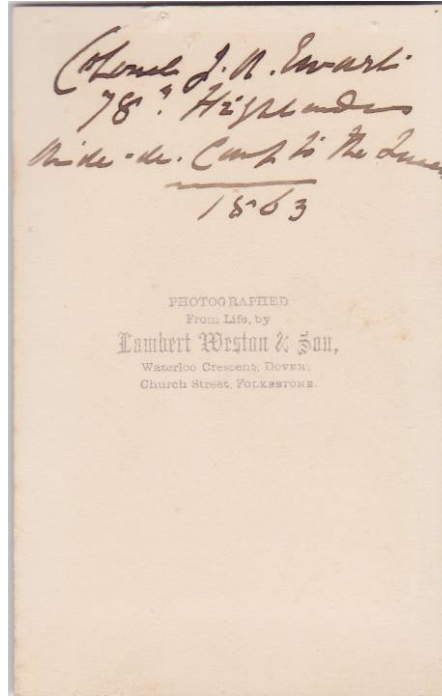 Colonel J. A. Ewart
78th Highlanders
Aide-de-Camp to the Queen
1863
PHOTOGRAPHED
From Life, by
Lambert Weston & Son,
Waterloo Crescent, DOVER,
Church Street, FOLKESTONE.